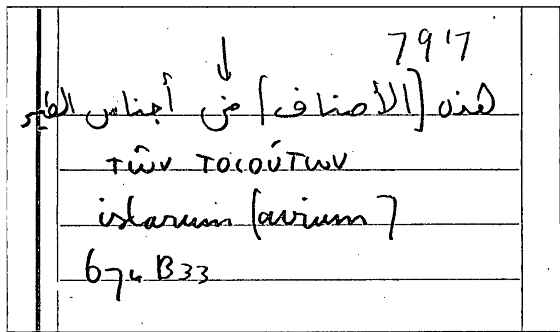 79'7
هذه [الأصناف] من أجناس الطير
τῶν τοιούτων
istarum (avium)
674 B33